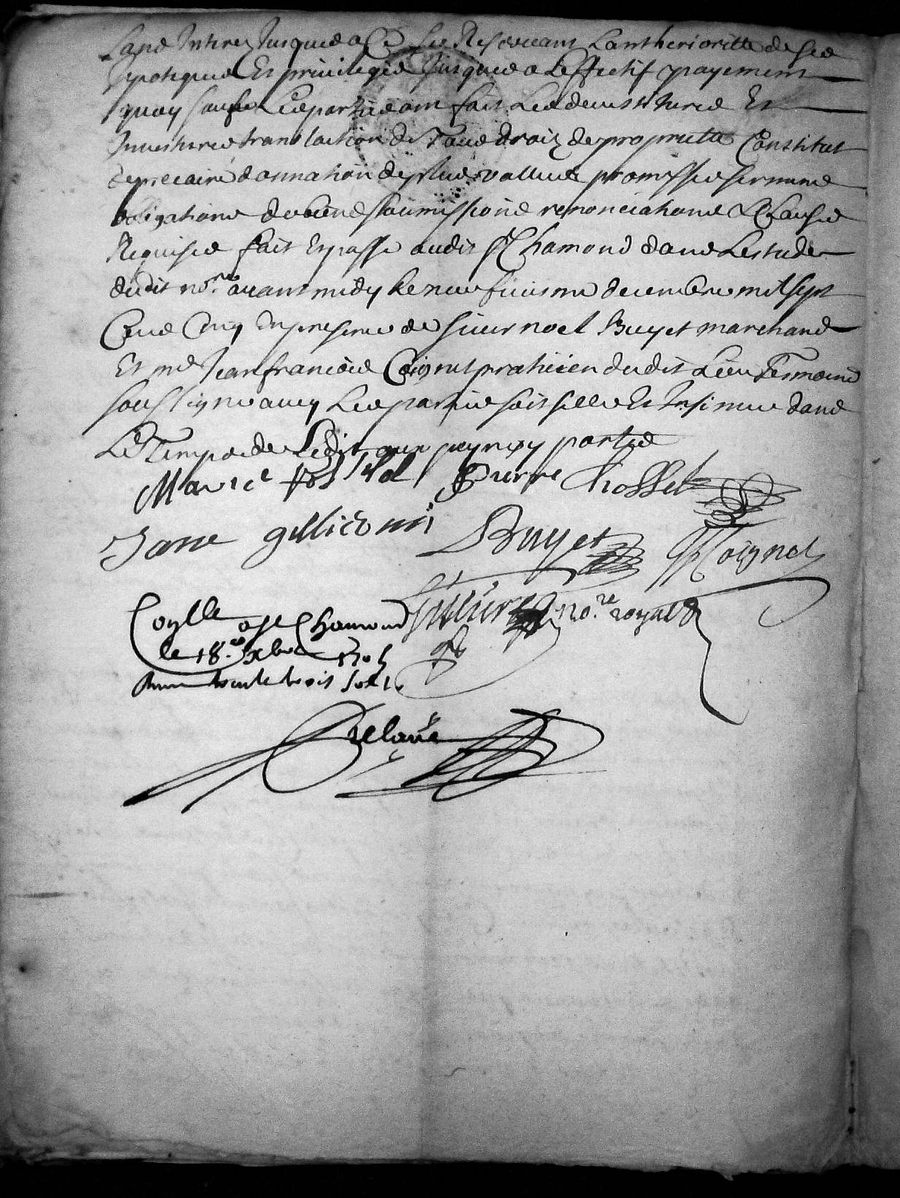 sans Interes Jusques a Ce Se Reservant Lantherioritte de ses
Ipoteques Et privileges Jusques a Leffectif payement
quoy faisant Les parties ont fait Les devestitures Et
Investitures translaction de Tous droitz de propriette Constitut
de precaire donnation de plus vallues promisses serment
obligations de biens soumissions renonciations & Clauses
Requises fait Et passe audit St Chamond dans Lestude
dudit nore avant midy le neufviesme decembre mil sept
Cens Cinq En presence de sieur noel Buyet marchand
Et me Jean francois Coignet praticien dudit Lieu Tesmoins
soussignes avec Les parties soit selle Et Insinue dans
Le Temps de Ledit aux peynes y portes
Pierre Chosset
Jane
Buyet Coignet
nore royal
a St Chamond
le 18e xbre 1705
trente trois sols